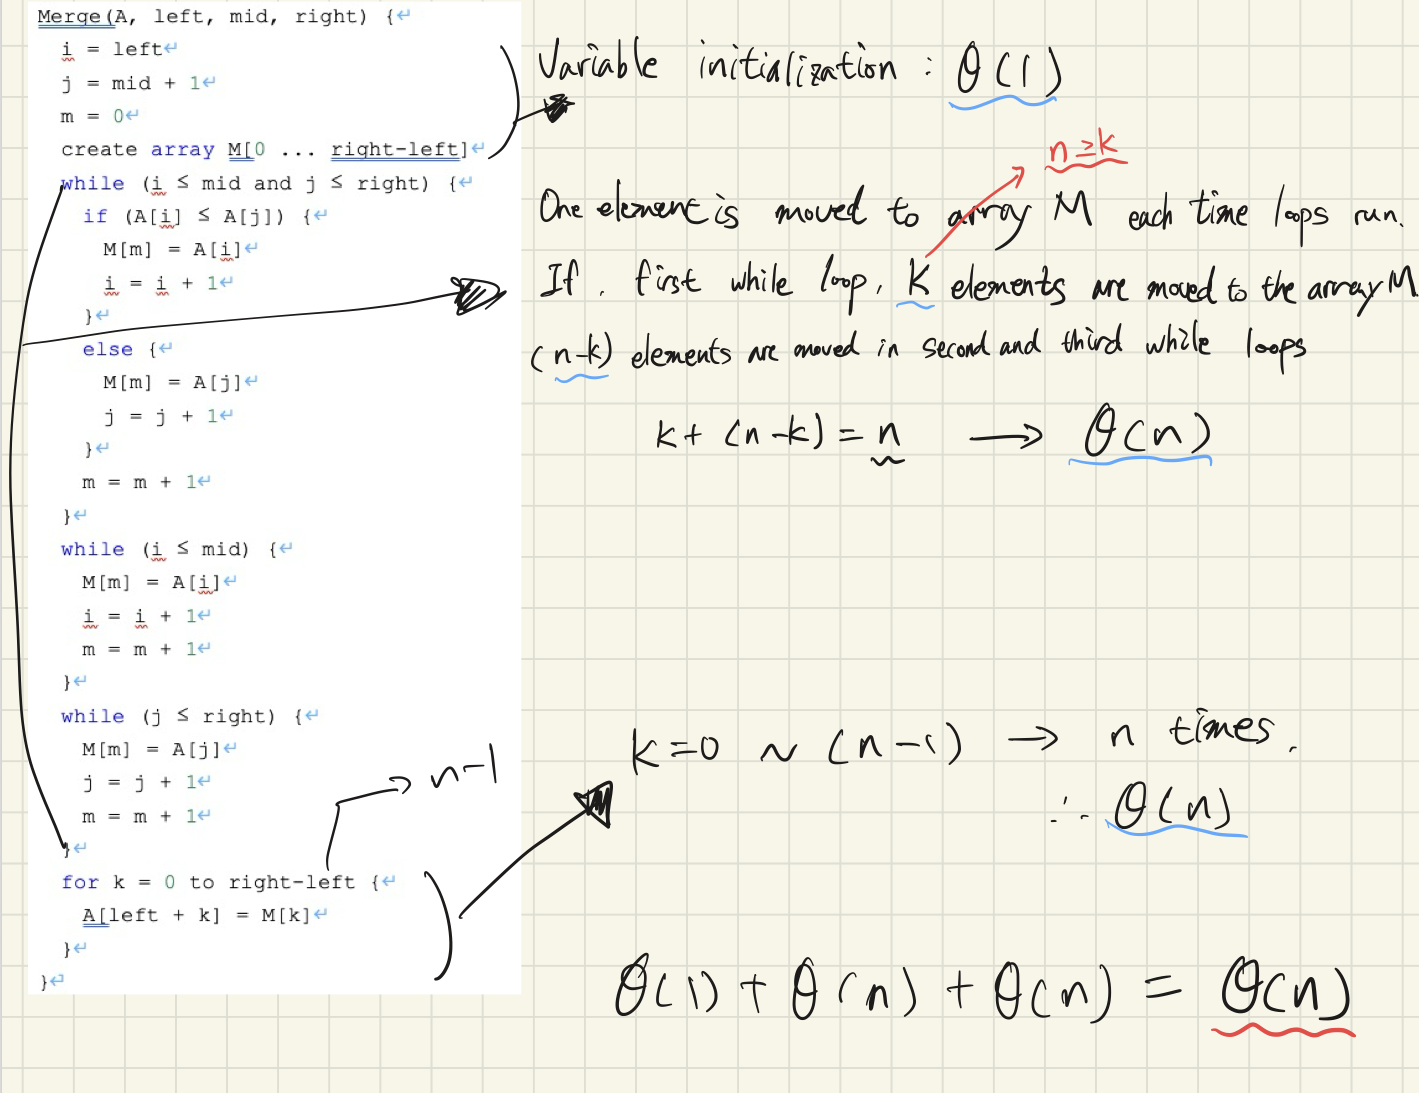 Merge(A, left, mid, right) {↵
i = left↵
j = mid + 1↵
m = 0↵
create array M[0 ... right-left]↵
while (i ≤ mid and j ≤ right) {↵
if (A[i] ≤ A[j]) {↵
M[m] = A[i]↵
i = i + 1↵
}↵
else {↵
M[m] = A[j]↵
j = j + 1↵
}↵
m = m + 1↵
}↵
while (i ≤ mid) {↵
M[m] = A[i]↵
i = i + 1↵
m = m + 1↵
}↵
while (j ≤ right) {↵
M[m] = A[j]↵
j = j + 1↵
m = m + 1↵
}↵
for k = 0 to right-left {↵
A[left + k] = M[k]↵
}↵
}↵
Variable initialization : θ(1)
n ≥ k
One element is moved to array M each time loops run.
If, first while loop, K elements are moved to the array M
(n-k) elements are moved in second and third while loops
k + (n-k) = n → θ(n)
n-1
k=0 ~ (n-1) → n times.
∴ θ(n)
θ(1) + θ(n) + θ(n) = θ(n)